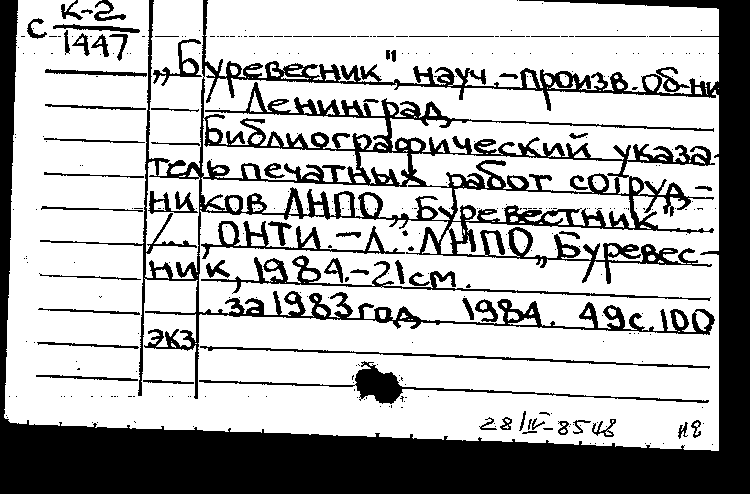 с К-2
1447
„Буревесник", науч.-произв. об-ни
Ленинград.
Библиографический указа-
тель печатных работ сотруд-
ников ЛНПО „Буревестник"....
/...,ОНТИ.-Л.:ЛНПО„Буревес-
ник, 1984.-21см.
..за 1983 год. 1984. 49с. 100
экз.
28/IV-85